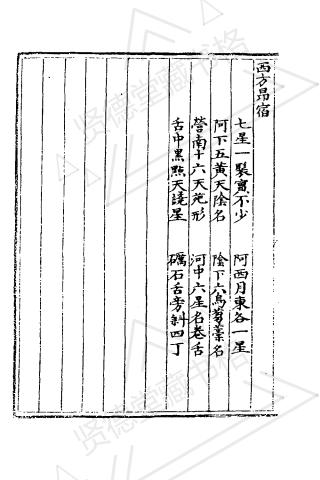 西方昴宿
七星一聚實不少 阿西月東各一星
阿下五黄天陰名 陰下六烏芻藁名
營南十六天苑形 河中六星名卷舌
舌中黑點天讒星 礪石舌旁斜四丁
贤德堂藏书格
贤德堂藏书格